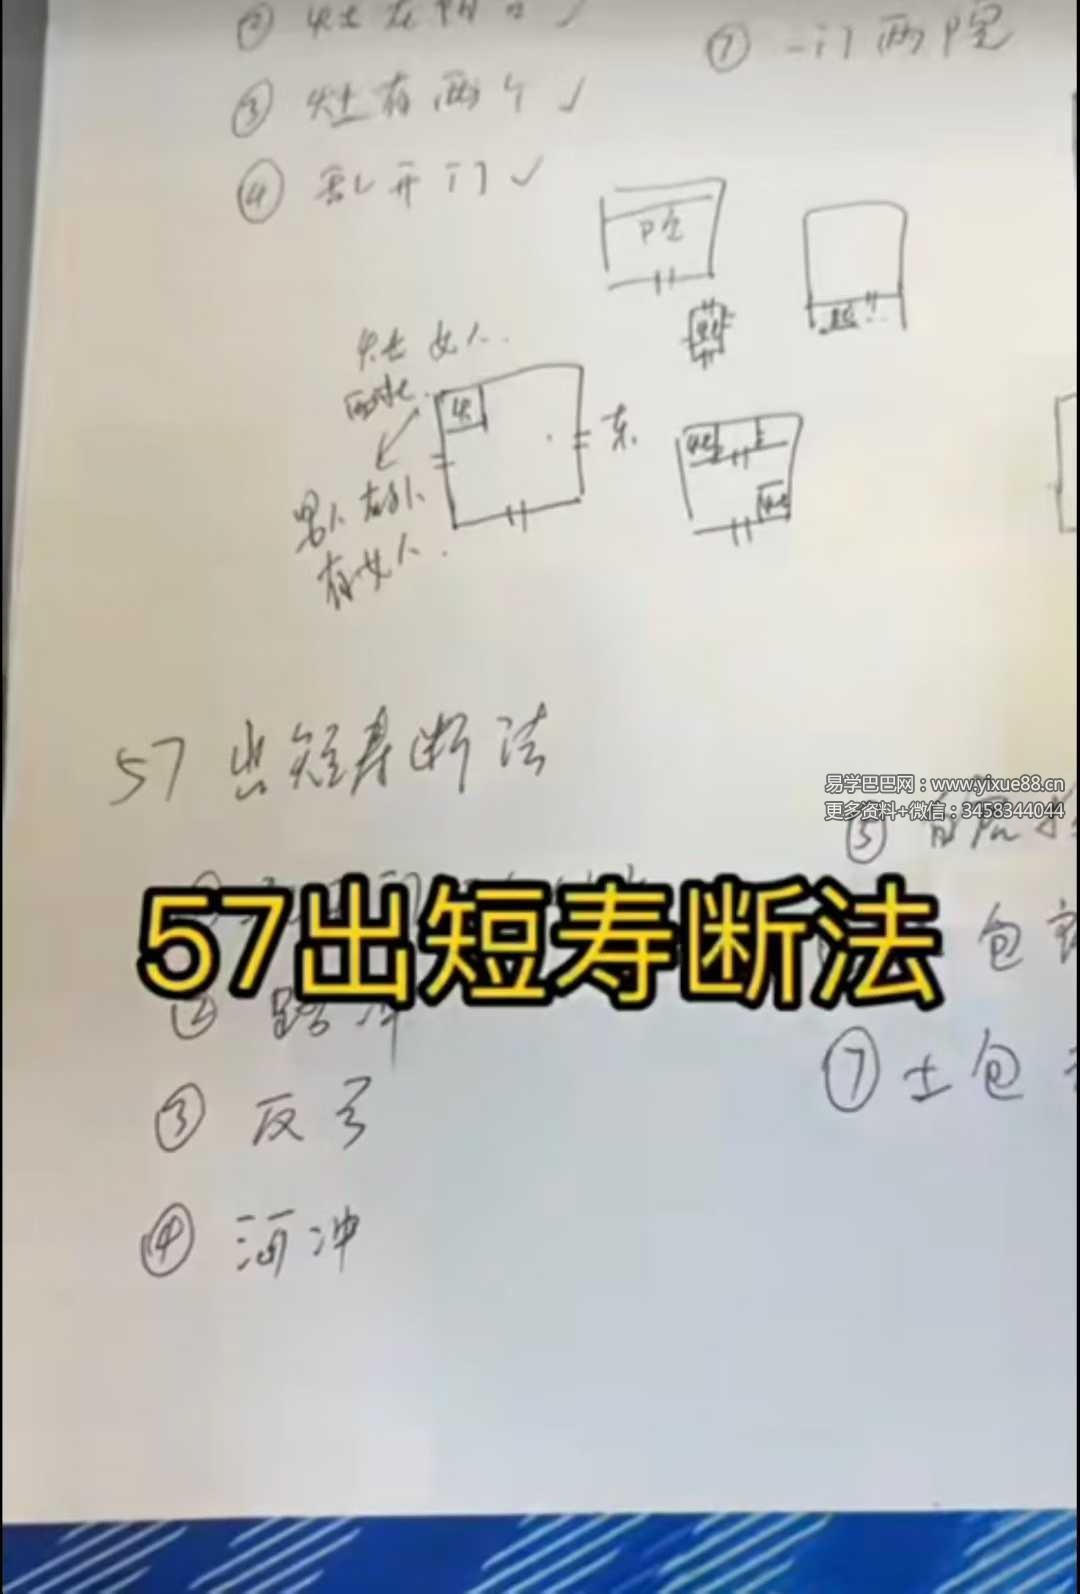 ② 灶在阳台 ✓
⑦ 一门两院
③ 灶有两个 ✓
④ 乱开门 ✓
灶 女人.
西北.
灶
东.
男人 在外
有女人.
灶
57 出短寿断法
易学巴巴网：www.yixue88.cn
更多资料+微信：3458344044
⑤
57出短寿断法
② 路冲
包
③ 反弓
⑦ 土包
④ 河冲